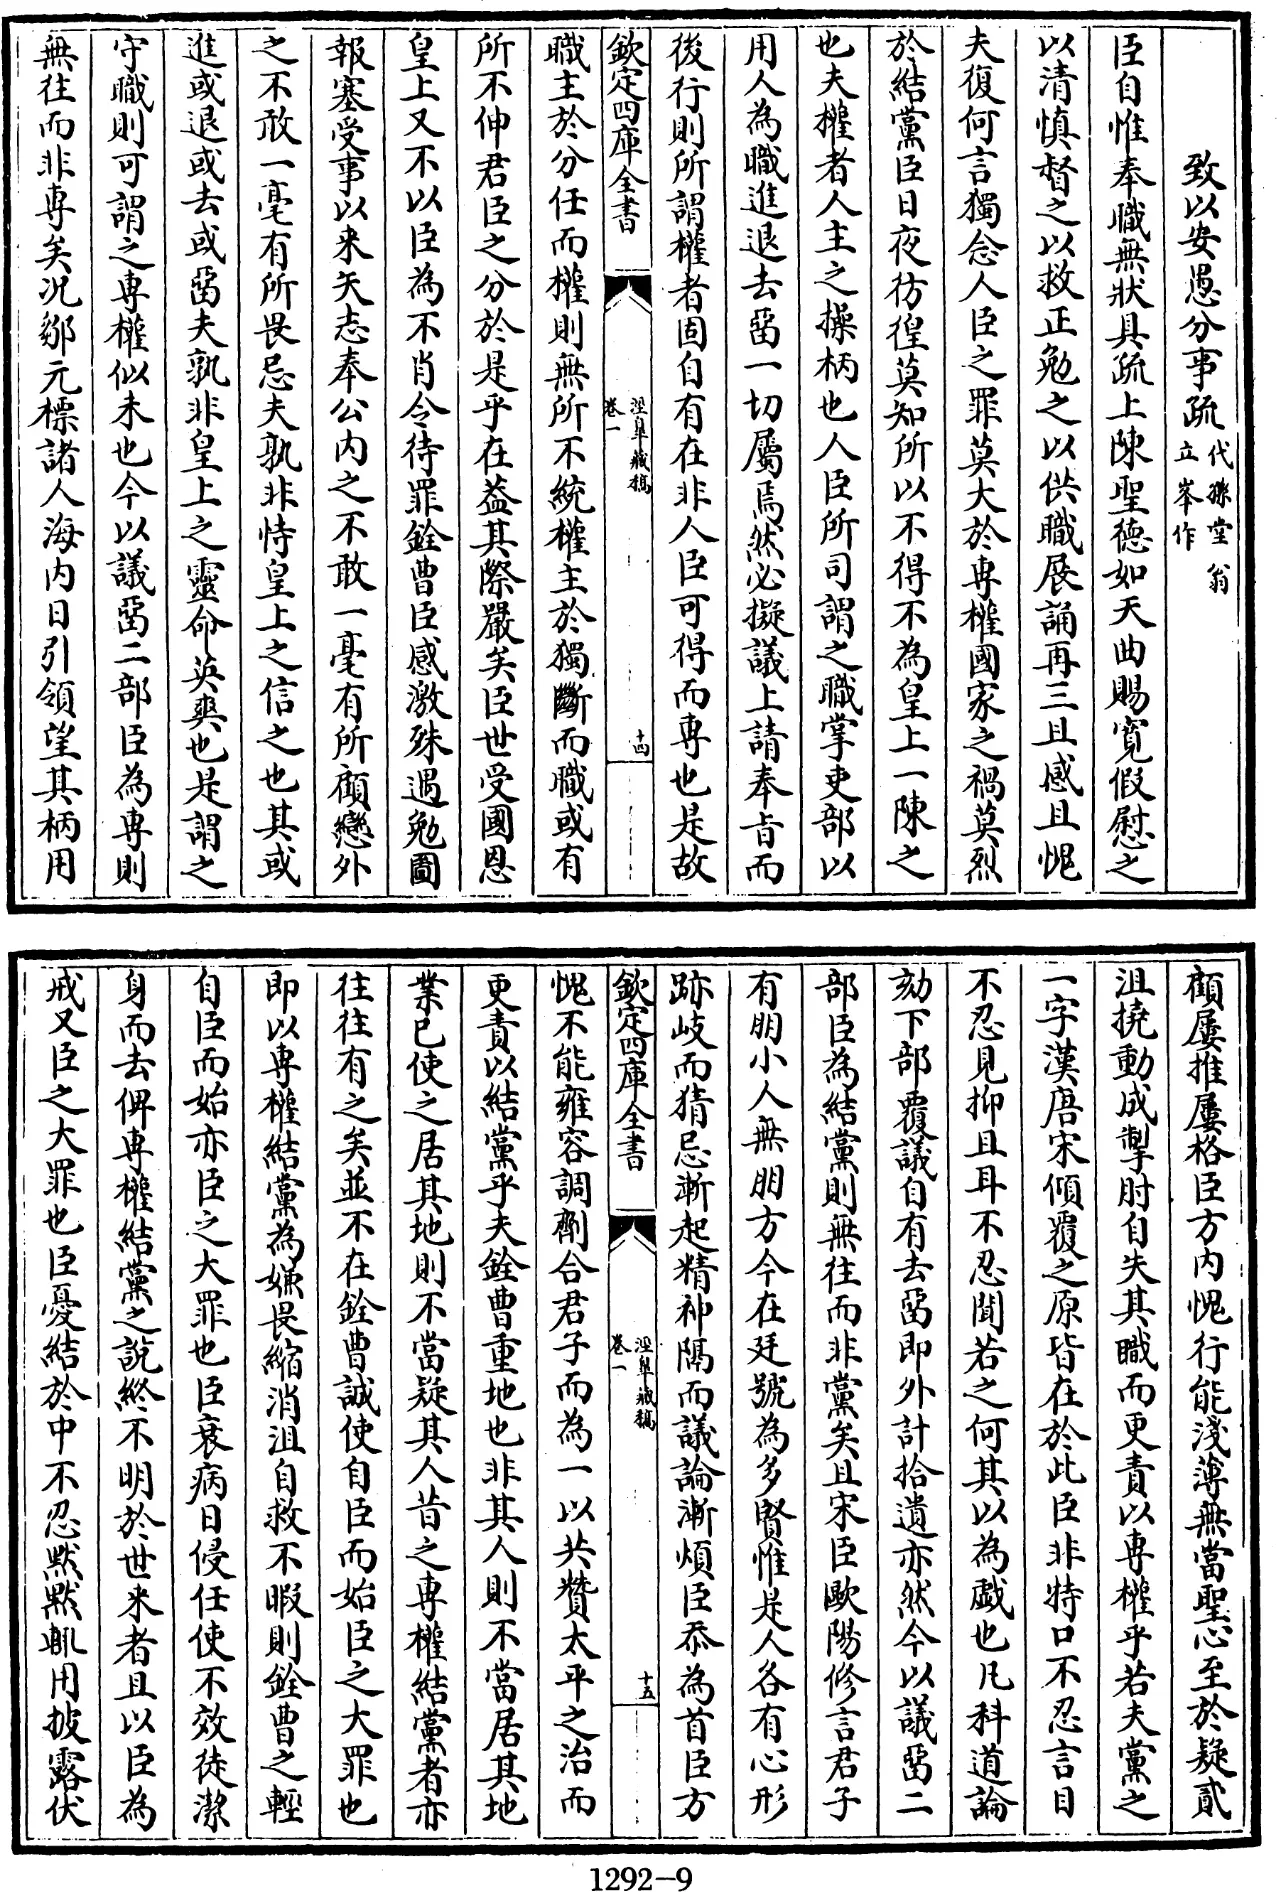 致以安愚分事疏代孫堂翁
立峯作
臣自惟奉職無狀具疏上陳聖德如天曲賜寬假慰之
以清慎督之以救正勉之以供職展誦再三且感且愧
夫復何言獨念人臣之罪莫大於専權國家之禍莫烈
於結黨臣日夜彷徨莫知所以不得不為皇上一陳之
也夫權者人主之操柄也人臣所司謂之職掌吏部以
用人為職進退去畱一切屬焉然必擬議上請奉旨而
後行則所謂權者固自有在非人臣可得而専也是故
欽定四庫全書
涇臯藏稿
卷一
十四
職主於分任而權則無所不統權主於獨斷而職或有
所不伸君臣之分於是乎在葢其際嚴矣臣世受國恩
皇上又不以臣為不肖令待罪銓曹臣感激殊遇勉圖
報塞受事以来矢志奉公内之不敢一毫有所顧戀外
之不敢一毫有所畏忌夫孰非恃皇上之信之也其或
進或退或去或畱夫孰非皇上之靈命英爽也是謂之
守職則可謂之専權似未也今以議畱二部臣為専則
無往而非専矣况鄒元標諸人海内日引領望其柄用
顧屢推屢格臣方内愧行能淺薄無當聖心至於疑貳
沮撓動成掣肘自失其職而更責以専權乎若夫黨之
一字漢唐宋傾覆之原皆在於此臣非特口不忍言目
不忍見抑且耳不忍聞若之何其以為戯也凡科道論
劾下部覆議自有去畱即外計拾遺亦然今以議畱二
部臣為結黨則無往而非黨矣且宋臣歐陽修言君子
有朋小人無朋方今在廷號為多賢惟是人各有心形
跡岐而猜忌漸起精神隔而議論漸煩臣忝為首臣方
欽定四庫全書
涇臯藏稿
卷一
十五
愧不能雍容調劑合君子而為一以共贊太平之治而
更責以結黨乎夫銓曹重地也非其人則不當居其地
業已使之居其地則不當疑其人昔之専權結黨者亦
往往有之矣並不在銓曹誠使自臣而始臣之大罪也
即以専權結黨為嫌畏縮消沮自救不暇則銓曹之輕
自臣而始亦臣之大罪也臣衰病日侵任使不效徒潔
身而去俾専權結黨之説終不明於世来者且以臣為
戒又臣之大罪也臣憂結於中不忍黙黙輒用披露伏
1292-9